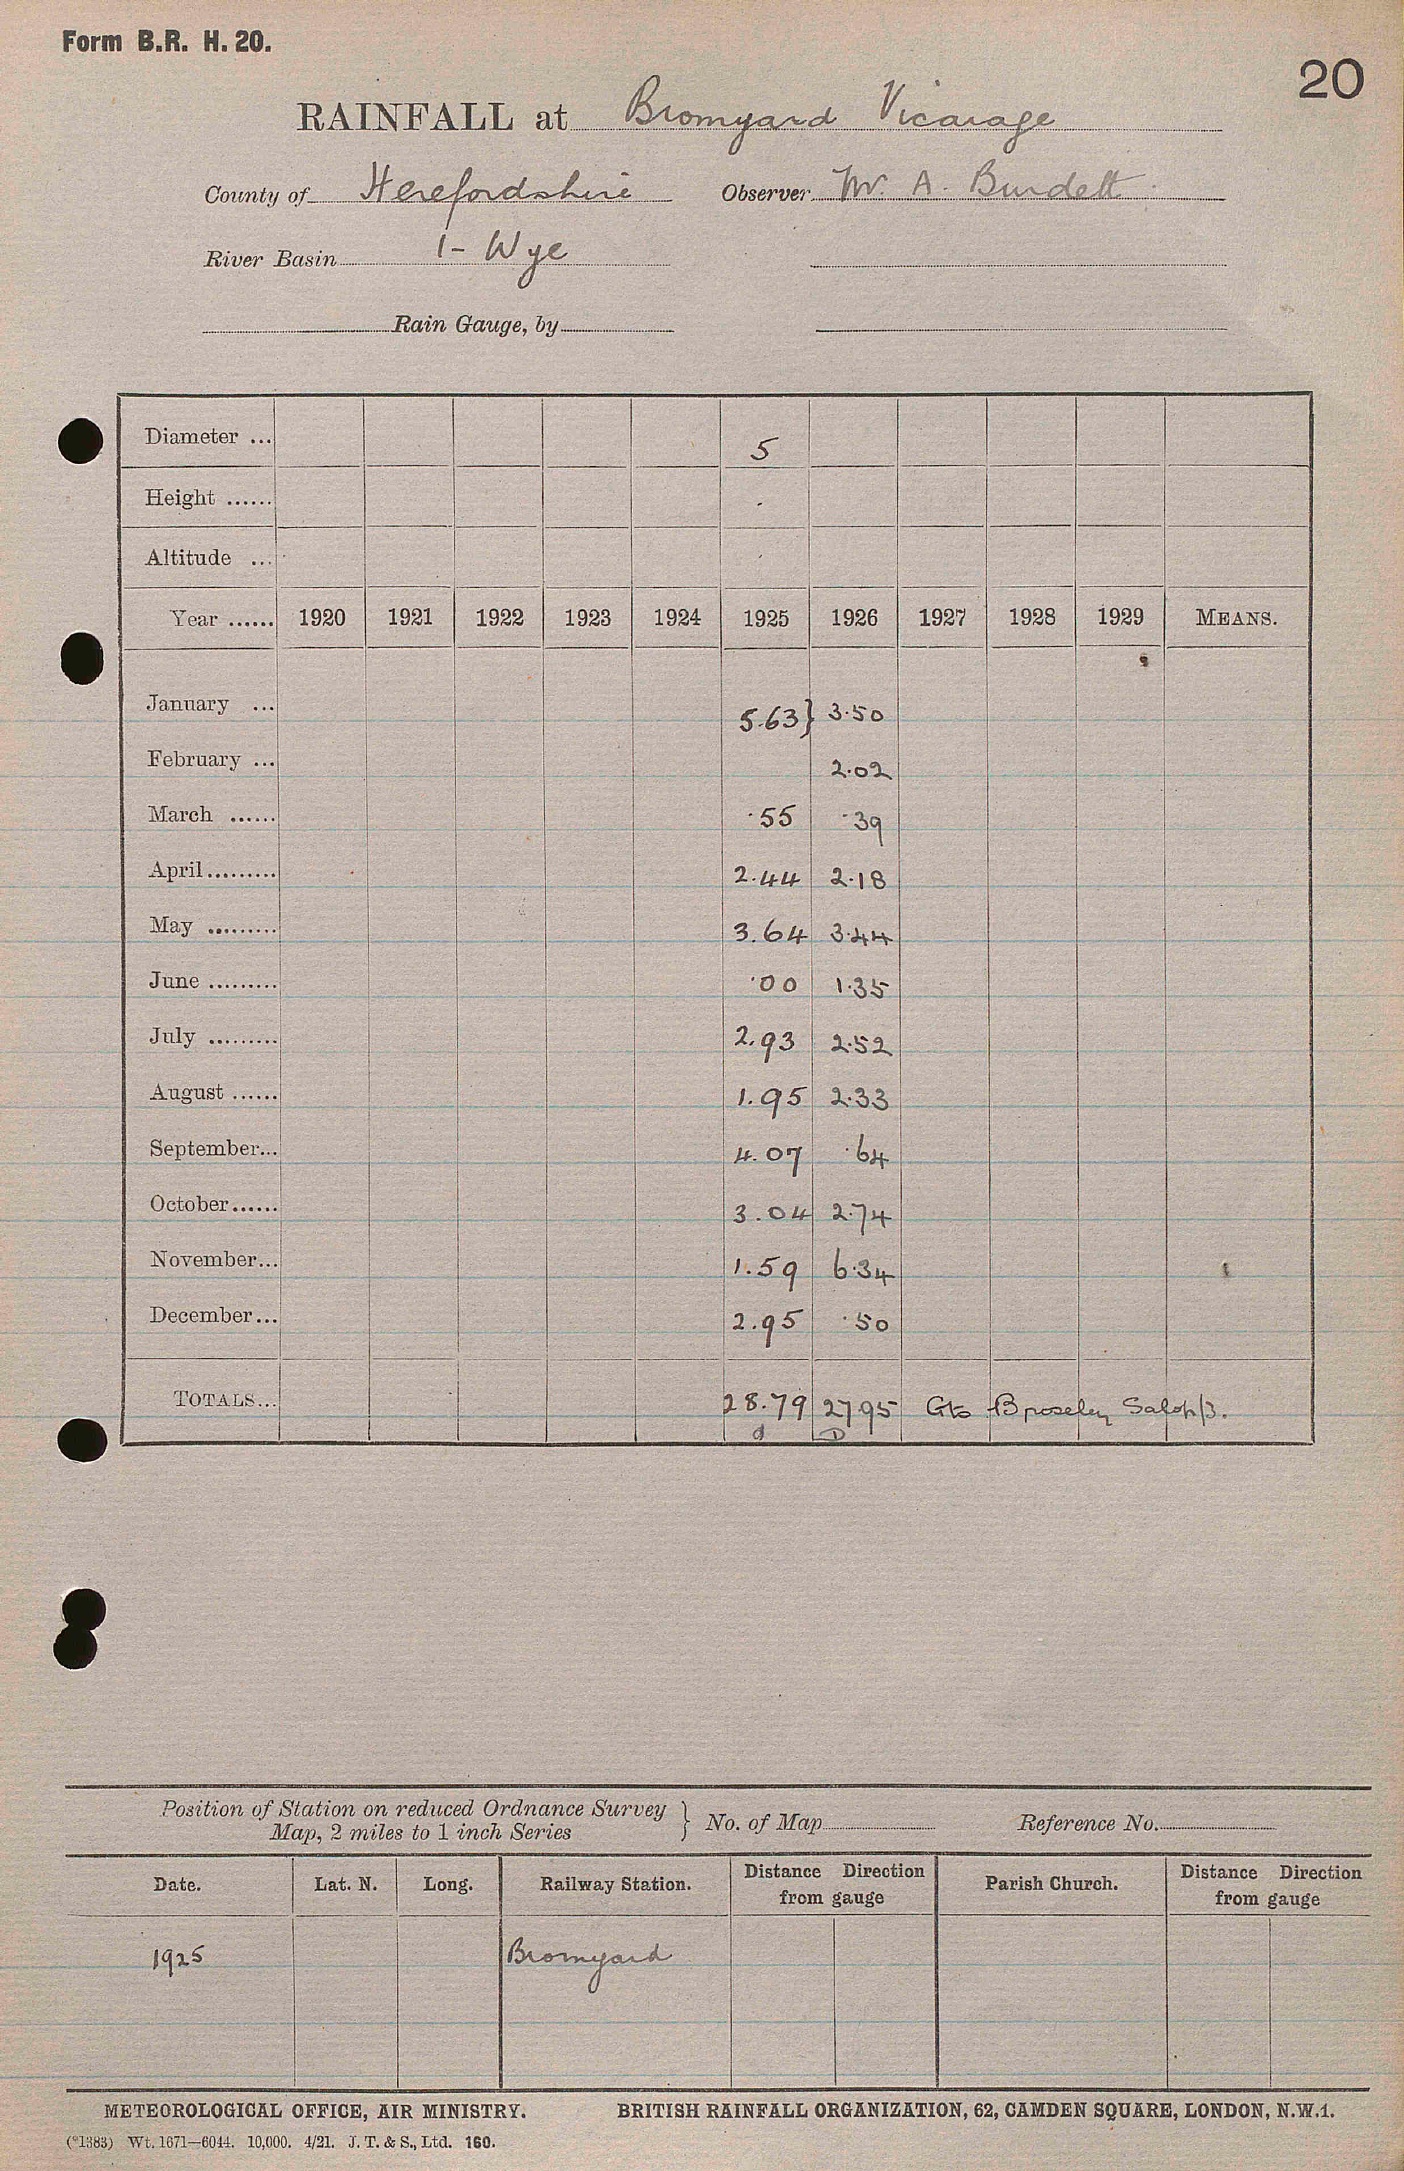 Form B.R. H. 20.
20
RAINFALL at Bromyard Vicarage
County of Herefordshire Observer Mr. A. Burdett
River Basin 1 - Wye
Rain Gauge, by
Diameter ... 5
Height ......
Altitude ...
Year ...... 1920 1921 1922 1923 1924 1925 1926 1927 1928 1929 MEANS.
January ... 5.63} 3.50
February ... 2.02
March ...... .55 .39
April ......... 2.44 2.18
May ......... 3.64 3.44
June ......... .00 1.35
July ......... 2.93 2.52
August ...... 1.95 2.33
September... 4.07 .64
October...... 3.04 2.74
November... 1.59 6.34
December... 2.95 .50
TOTALS... 28.79 27.95 Gto Broseley Salop/3.
d D
Position of Station on reduced Ordnance Survey
Map, 2 miles to 1 inch Series } No. of Map Reference No.
Date. Lat. N. Long. Railway Station. Distance Direction from gauge Parish Church. Distance Direction from gauge
1925 Bromyard
METEOROLOGICAL OFFICE, AIR MINISTRY. BRITISH RAINFALL ORGANIZATION, 62, CAMDEN SQUARE, LONDON, N.W.1.
(*1383) Wt. 1671—6044. 10,000. 4/21. J. T. & S., Ltd. 160.